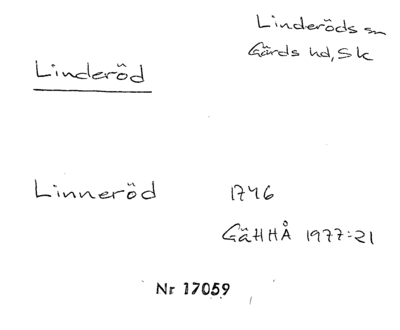 Linderöds sn
Gärds hd, Sk
Linderöd
Linneröd 1746
GäHHÅ 1977:21
Nr 17059